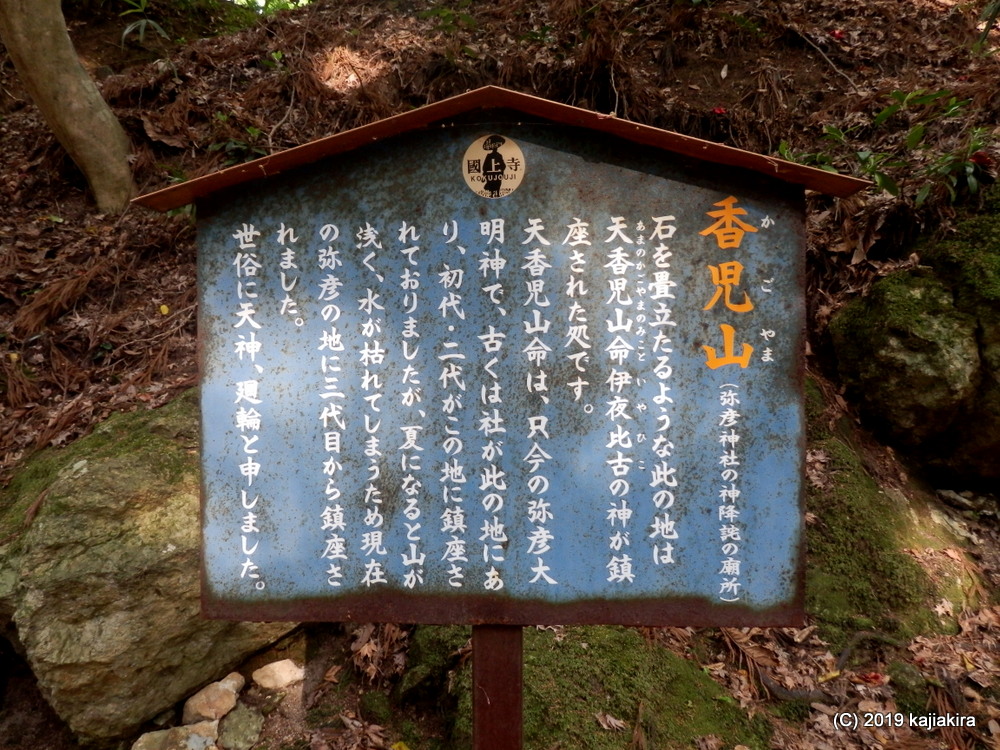 國上寺
KOKUJOUJI
香児山
かごやま
（弥彦神社の神降詫の廟所）
石を畳立たるような此の地は
天香児山命伊夜比古の神が鎮
あまのかごやまのみこといやひこ
座された処です。
天香児山命は、只今の弥彦大
明神で、古くは社が此の地にあ
り、初代・二代がこの地に鎮座さ
れておりましたが、夏になると山が
浅く、水が枯れてしまうため現在
の弥彦の地に三代目から鎮座さ
れました。
世俗に天神、廻輪と申しました。
(C) 2019 kajiakira